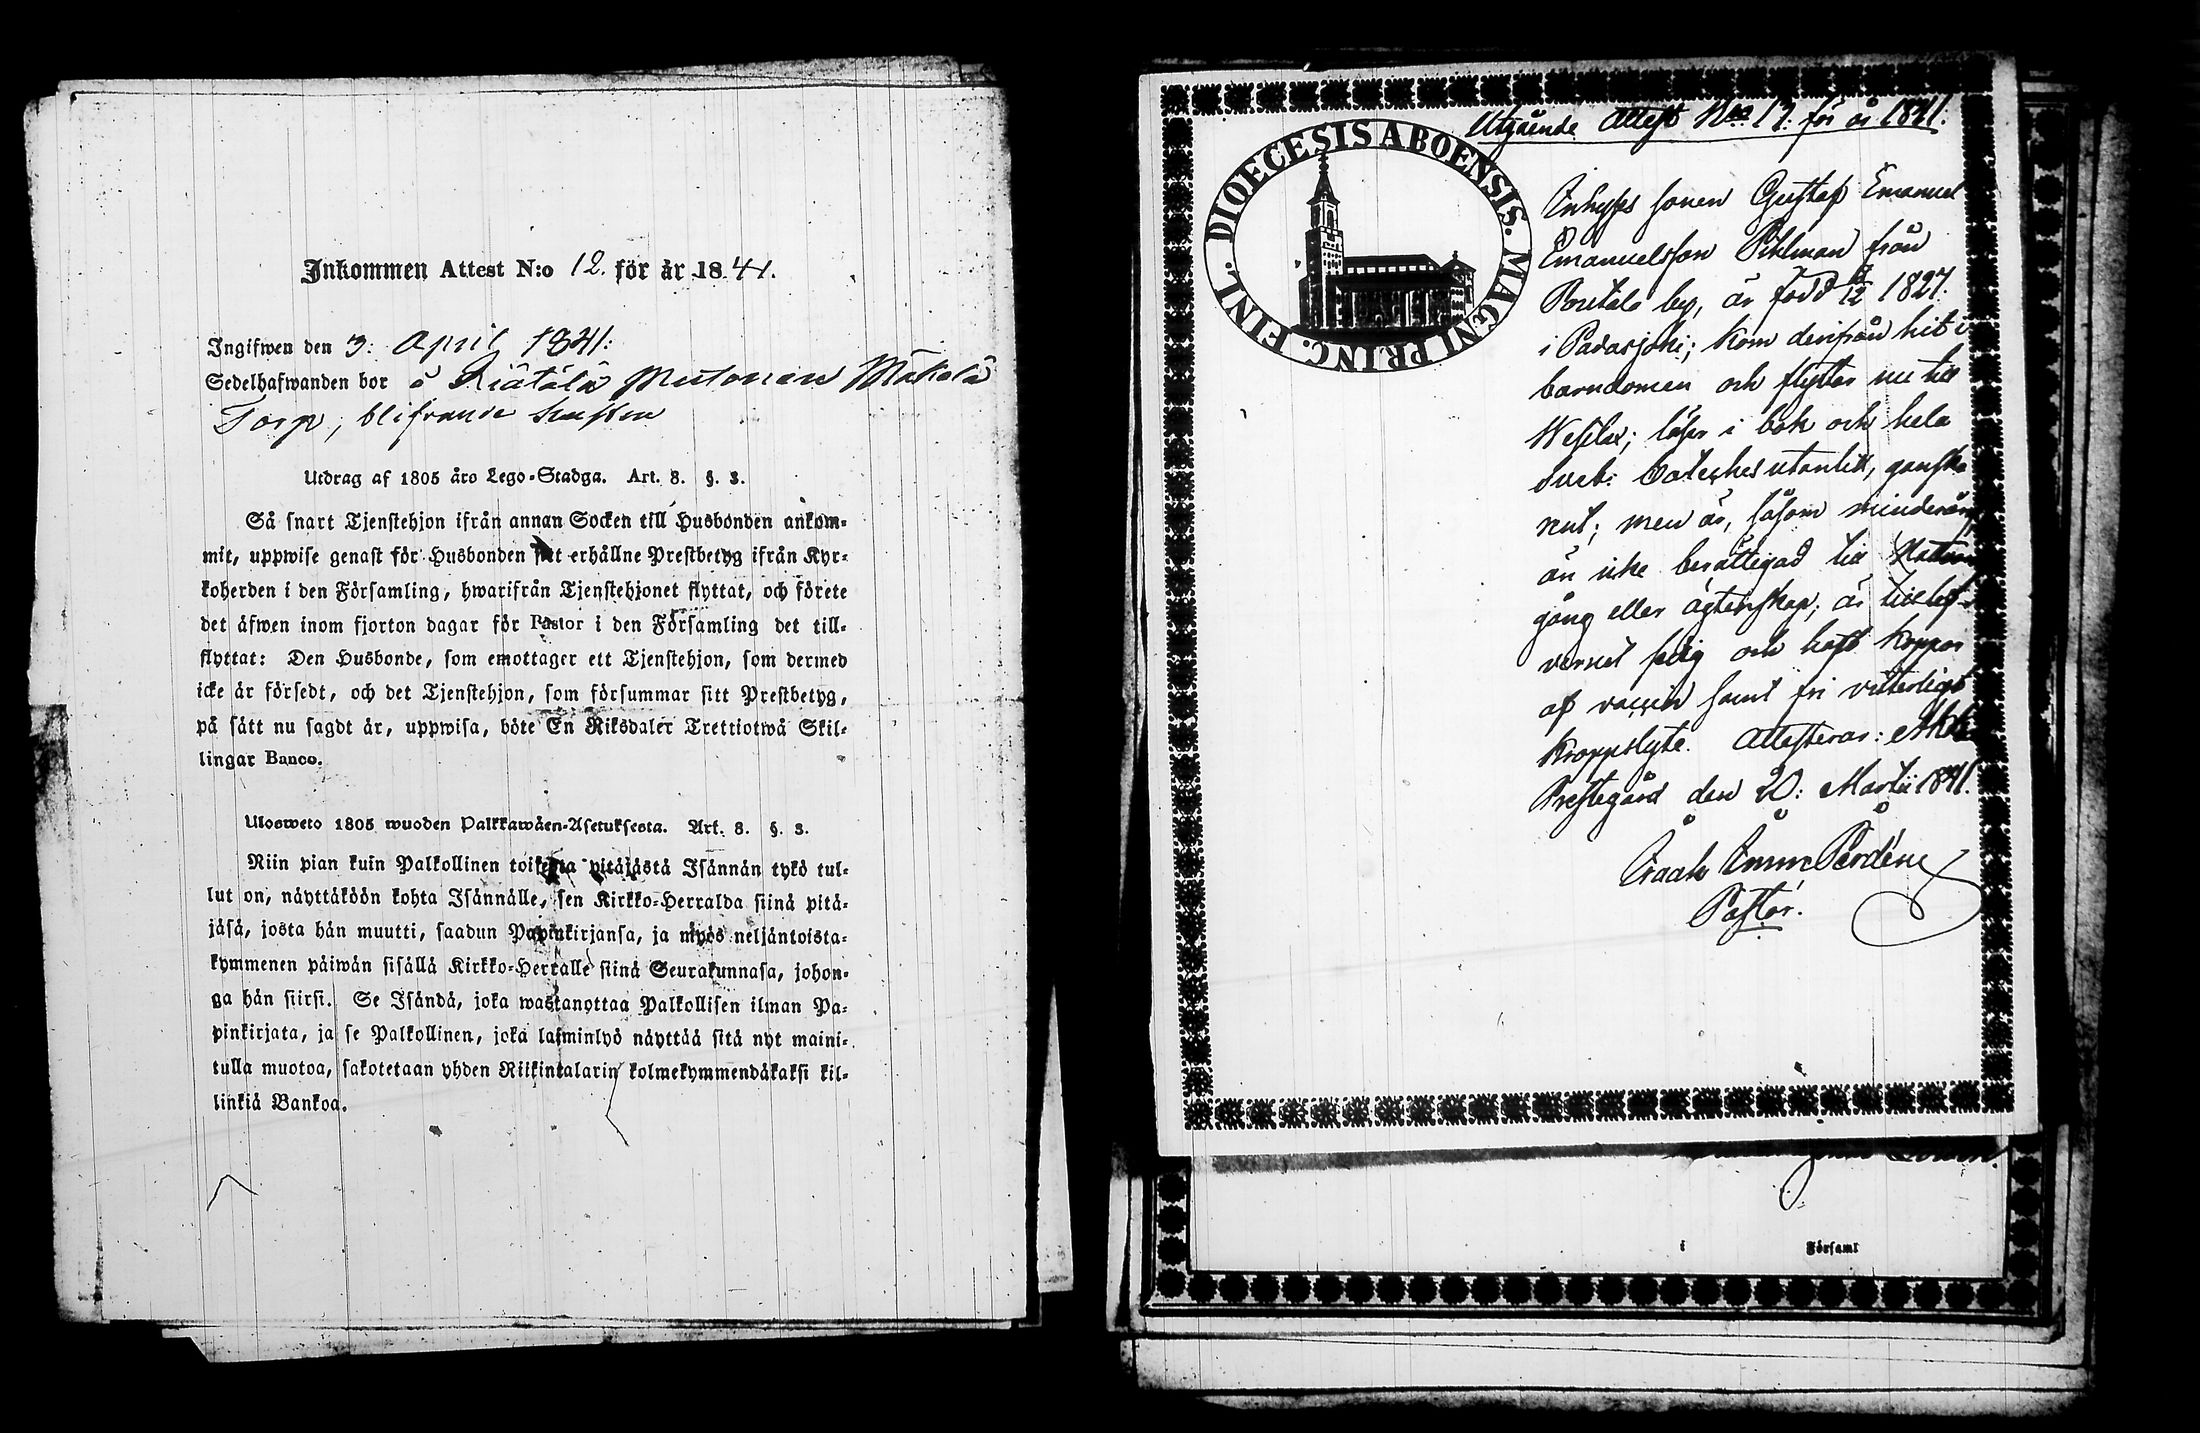 Inkommen Attest N:o 12. för år 1841.
Ingifwen den 3: April 1841:
Sedelhafwanden bor å Riätälä Mutonen Mäkelä
Torp, blifvande
Utdrag af 1805 års Lego-Stadga. Art. 8. §. 3.
Så snart Tjenstehjon ifrån annan Socken till Husbonden ankom-
mit, uppwise genast för Husbonden sitt erhållne Prestbetyg ifrån Kyr-
koherden i den Församling, hwarifrån Tjenstehjonet flyttat, och förete
det äfwen inom fjorton dagar för Pastor i den Församling det till-
flyttat: Den Husbonde, som emottager ett Tjenstehjon, som dermed
icke är försedt, och det Tjenstehjon, som försummar sitt Prestbetyg,
på sätt nu sagdt är, uppwisa, böte En Riksdaler Trettiotwå Skil-
lingar Banco.
Ulosweto 1805 wuoden Palkkawäen-Asetuksesta. Art. 8. §. 3.
Niin pian kuin Palkollinen toisesta pitäjästä Isännän tykö tul-
lut on, näyttäköön kohta Isännälle, sen Kirkko-Herralda siinä pitä-
jäsä, josta hän muutti, saadun Papinkirjansa, ja myös neljäntoista-
kymmenen päiwän sisällä Kirkko-Herralle siinä Seurakunnasa, johon-
ga hän siirsi. Se Isändä, joka wastanottaa Palkollisen ilman Pa-
pinkirjata, ja se Palkollinen, joka laiminlyö näyttää sitä nyt maini-
tulla muotoa, sakotetaan yhden Riikintalarin kolmekymmendäkaksi kil-
linkiä Bankoa.
Utgående Attest No 17: för år 1841.
DIOECESIS ABOENSIS. MAGNI PRINC. FINL.
Inhyses sonen Gustaf Emanuel
Emanuelsson Pihlman från
by, är född 12 1827:
i Padasjoki; kom derifrån hit i
barndomen och flyttar nu till
Wesilax; läser i bok och hela
Sveb: Cateches utantill, ganska
nut; men är, såsom minderårig
än icke berättigad till Nattvard
gång eller ägtenskap; är till lef-
vernet fredlig och haft koppor
af vaccin samt fri vitterligt
kroppslyte. Attesteras:
Prestegård den 20: Martii 1841.
Isaak
Pastor.
i Församl